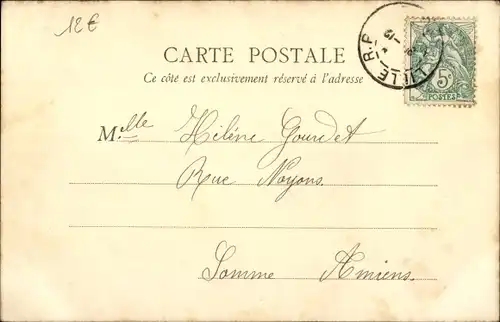 12€
CARTE POSTALE
Ce côté est exclusivement réservé à l'adresse
LILLE R.P
5c
POSTES
Melle Hélène Gourdet
Rue Noyons
Somme Amiens